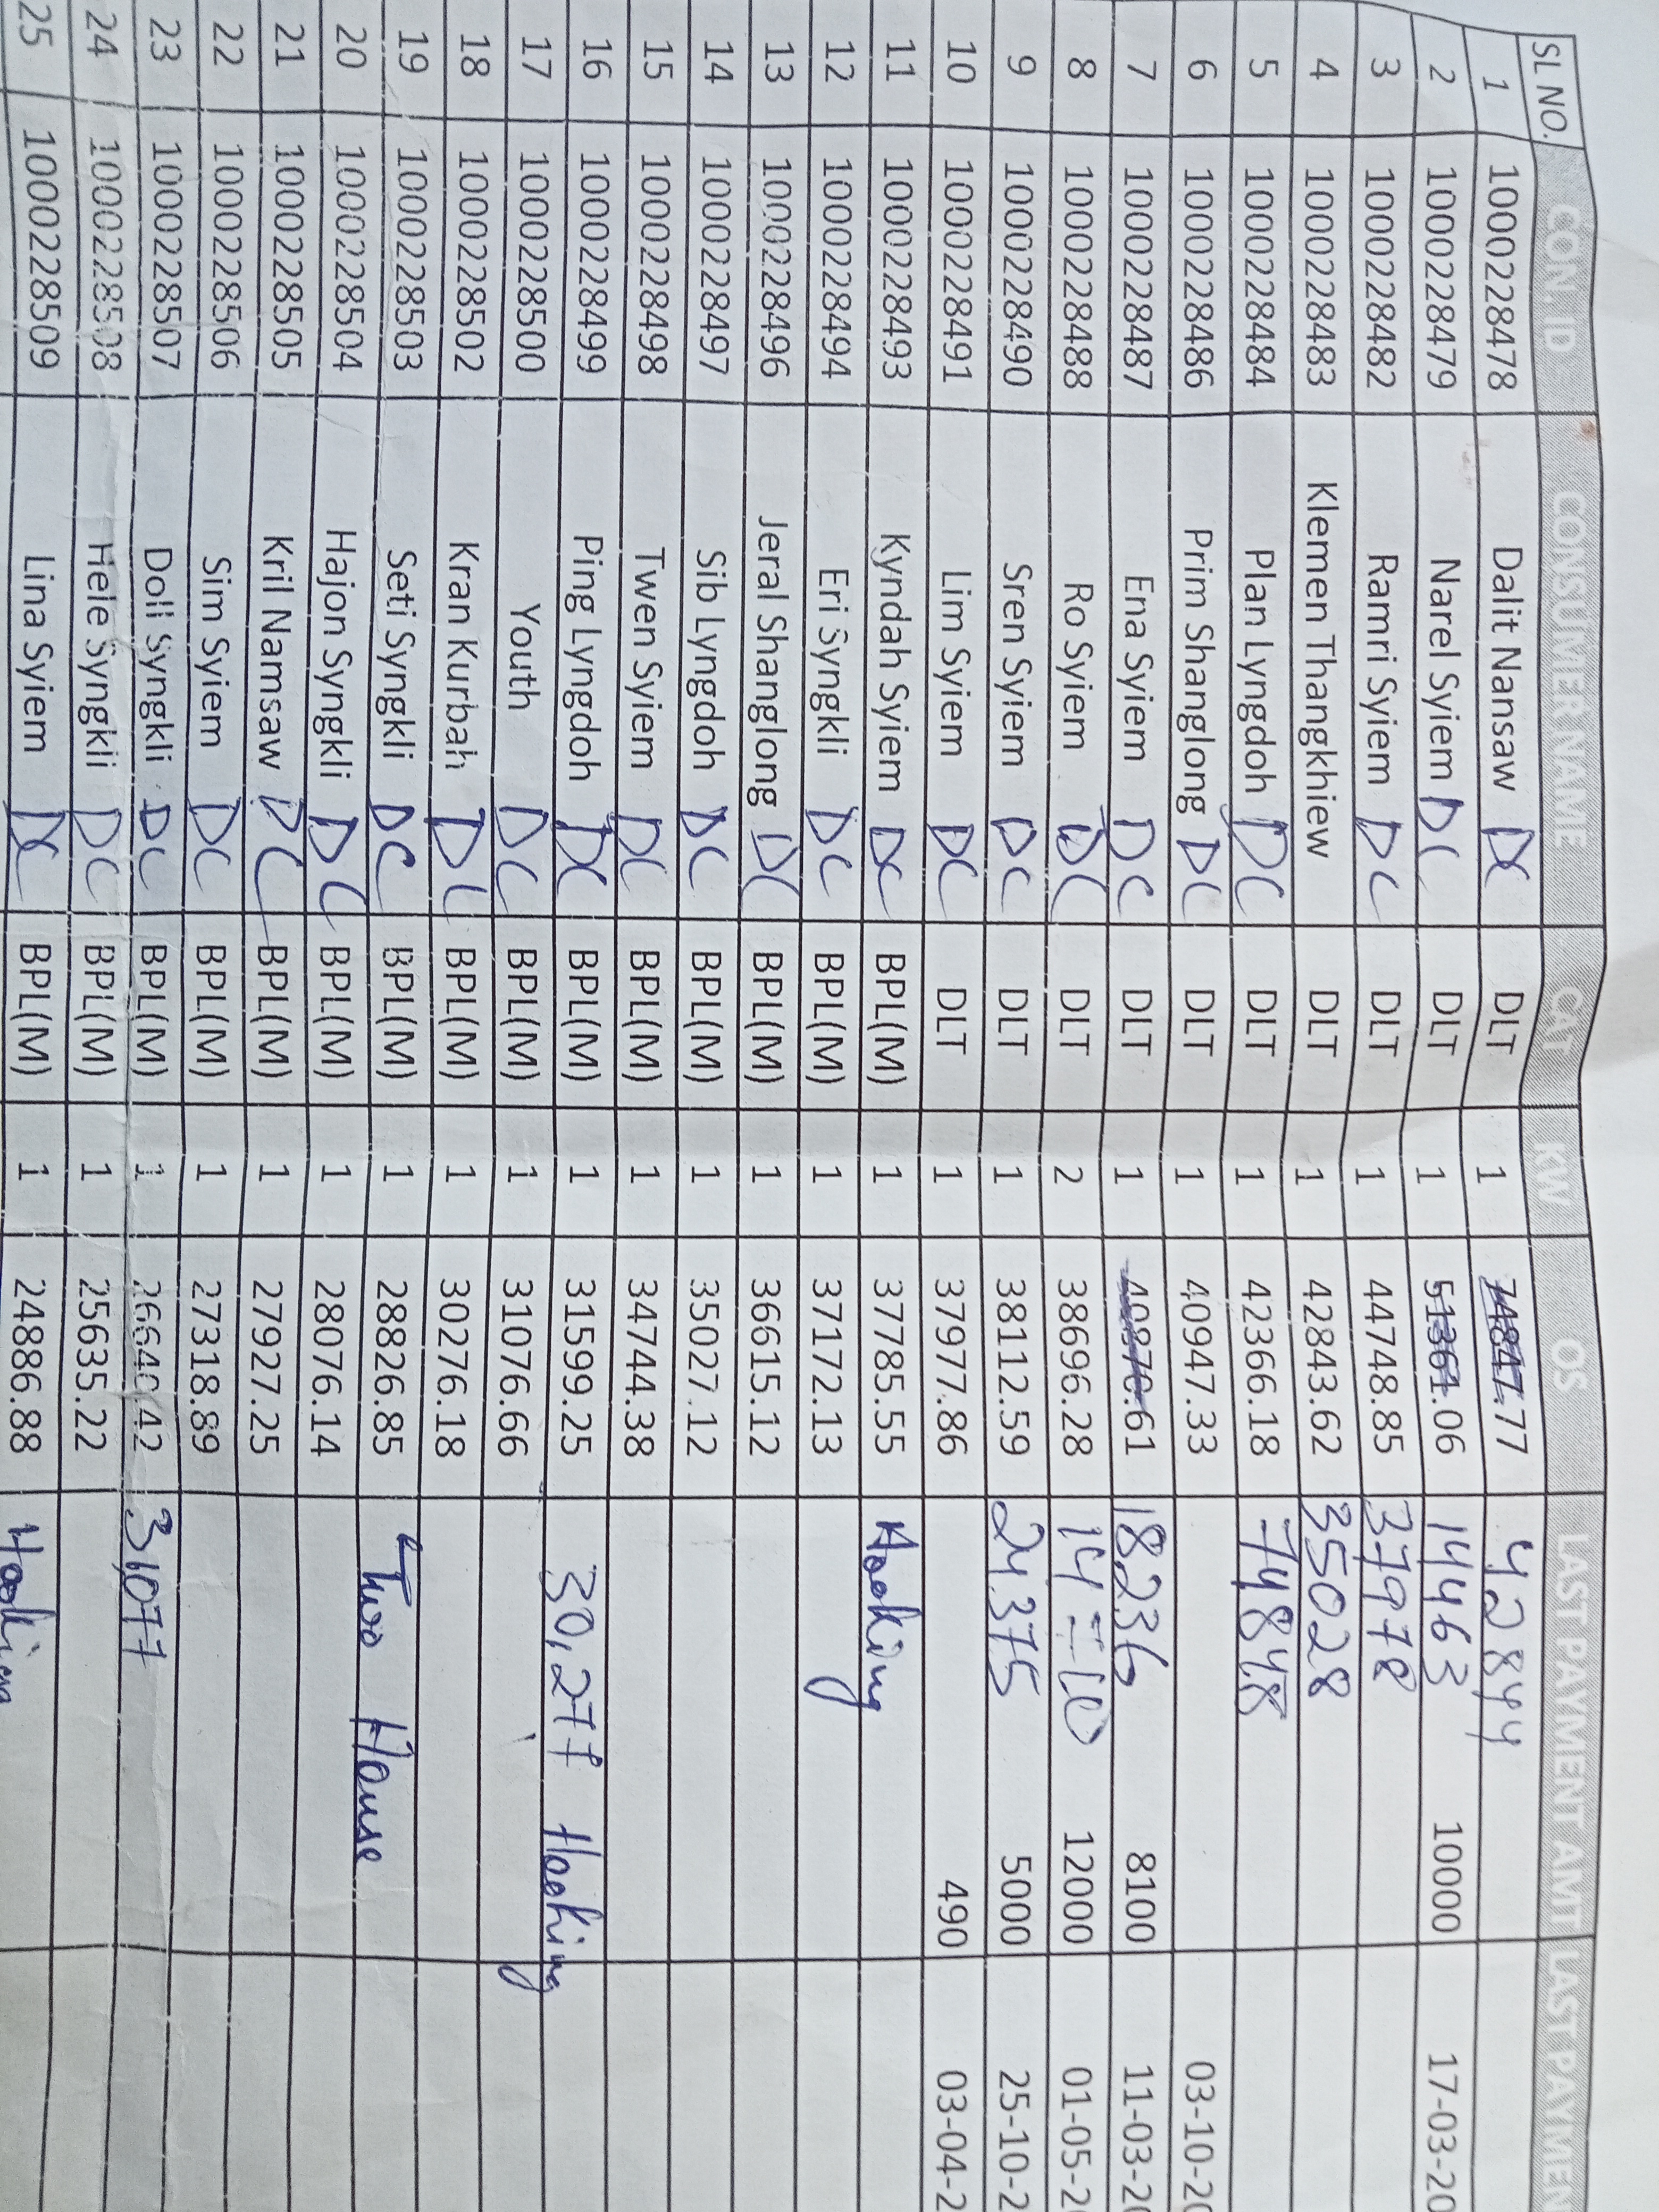 SL NO. CON. ID CONSUMER NAME CAT KW OS LAST PAYMENT AMT LAST PAYMEN
1 1000228478 Dalit Nansaw DC DLT 1 74847.77 42844
2 1000228479 Narel Syiem DC DLT 1 51361.06 14463 10000 17-03-20
3 1000228482 Ramri Syiem DC DLT 1 44748.85 37978
4 1000228483 Klemen Thangkhiew DLT 1 42843.62 35028
5 1000228484 Plan Lyngdoh DC DLT 1 42366.18 74848
6 1000228486 Prim Shanglong DC DLT 1 40947.33 03-10-20
7 1000228487 Ena Syiem DC DLT 1 40870.61 18236 8100 11-03-20
8 1000228488 Ro Syiem DC DLT 2 38696.28 12000 01-05-20
9 1000228490 Sren Syiem DC DLT 1 38112.59 24375 5000 25-10-2
10 1000228491 Lim Syiem DC DLT 1 37977.86 490 03-04-2
11 1000228493 Kyndah Syiem DC BPL(M) 1 37785.55 Hooking
12 1000228494 Eri Syngkli DC BPL(M) 1 37172.13
13 1000228496 Jeral Shanglong DC BPL(M) 1 36615.12
14 1000228497 Sib Lyngdoh DC BPL(M) 1 35027.12
15 1000228498 Twen Syiem DC BPL(M) 1 34744.38
16 1000228499 Ping Lyngdoh DC BPL(M) 1 31599.25 30,277 Hooking
17 1000228500 Youth DC BPL(M) 1 31076.66
18 1000228502 Kran Kurbah DC BPL(M) 1 30276.18
19 1000228503 Seti Syngkli DC BPL(M) 1 28826.85 Two House
20 1000228504 Hajon Syngkli DC BPL(M) 1 28076.14
21 1000228505 Kril Namsaw DC BPL(M) 1 27927.25
22 1000228506 Sim Syiem DC BPL(M) 1 27318.89
23 1000228507 Doll Syngkli DC BPL(M) 1 26640.42 31077
24 1000228508 Hele Syngkli DC BPL(M) 1 25635.22
25 1000228509 Lina Syiem DC BPL(M) 1 24886.88 Hooking